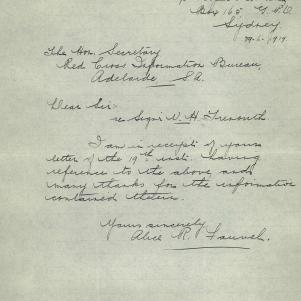 Box 165 G.P.O
Sydney
The Hon. Secretary
Red Cross Information Bureau,
Adelaide, S.A.
Dear Sir
re W. H. Trenouth.
I am in receipt of yours
letter of the 19th inst. having
reference to the above and
many thanks for the information
contained therein.
Yours sincerely
Alice R.